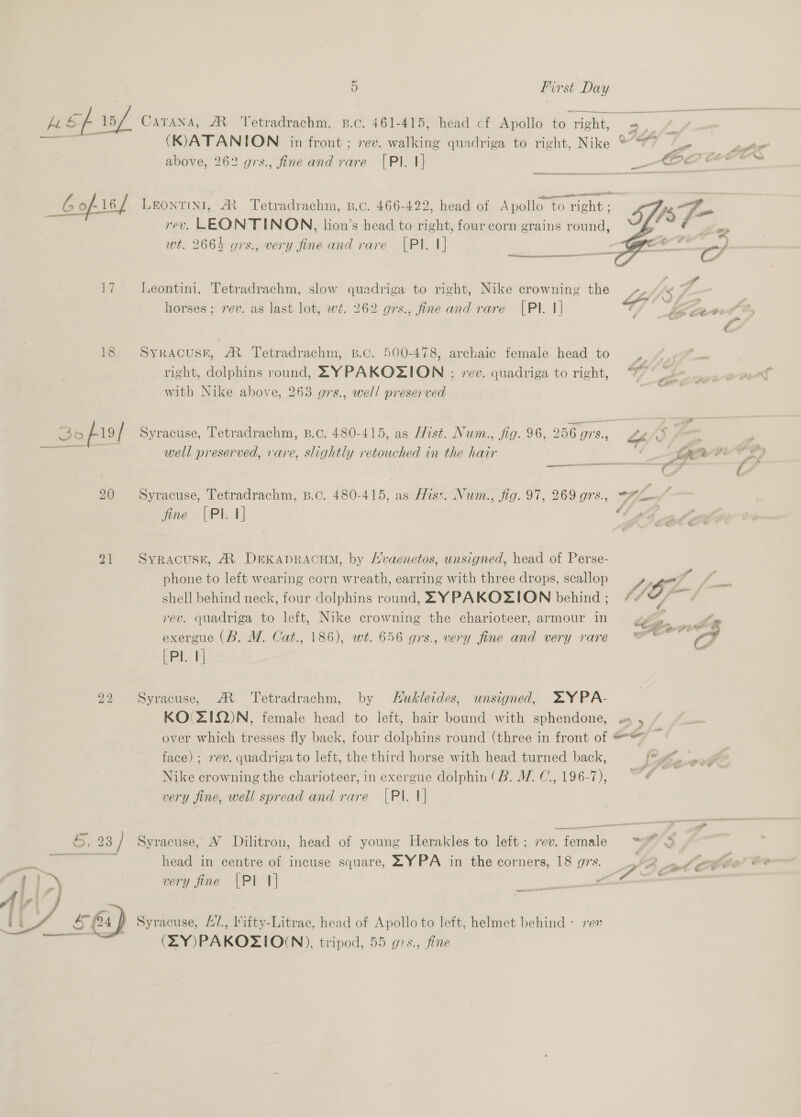 5 First Day
15 CATANA, AR Tetradrachm, B.C. 461-415, head of Apollo to right,
(K)ATANION in front ; rev. walking quadriga to right, Nike
above, 262 grs., fine and rare [Pl. I]
16 LEONTINI, AR Tetradrachm, B.C. 466-422, head of Apollo to right ;
rev. LEONTINON, lion's head to right, four corn grains round,
wt. 266½ grs., very fine and rare [Pl. I]
17 Leontini, Tetradrachm, slow quadriga to right, Nike crowning the
horses ; rev. as last lot, wt. 262 grs., fine and rare [Pl. I]
18 SYRACUSE, AR Tetradrachm, B.C. 500-478, archaic female head to
right, dolphins round, ΣΥΡAKOΣION ; rev. quadriga to right,
with Nike above, 263 grs., well preserved
19 Syracuse, Tetradrachm, B.C. 480-415, as Hist. Num., fig. 96, 256 grs.,
well preserved, rare, slightly retouched in the hair
20 Syracuse, Tetradrachm, B.C. 480-415, as Hist. Num., fig. 97, 269 grs.,
fine [Pl. I]
21 SYRACUSE, AR DEKADRACHM, by Evaenetos, unsigned, head of Perse-
phone to left wearing corn wreath, earring with three drops, scallop
shell behind neck, four dolphins round, ΣΥΡAKOΣION behind ;
rev. quadriga to left, Nike crowning the charioteer, armour in
exergue (B. M. Cat., 186), wt. 656 grs., very fine and very rare
[Pl. I]
22 Syracuse, AR Tetradrachm, by Eukleides, unsigned, ΣΥΡA-
KO(ΣIΩ)N, female head to left, hair bound with sphendone,
over which tresses fly back, four dolphins round (three in front of
face) ; rev. quadriga to left, the third horse with head turned back,
Nike crowning the charioteer, in exergue dolphin (B. M. C., 196-7),
very fine, well spread and rare [Pl. I]
23 Syracuse, AV Dilitron, head of young Herakles to left ; rev. female
head in centre of incuse square, ΣΥΡA in the corners, 18 grs.
very fine [Pl I]
24 Syracuse, El., Fifty-Litrae, head of Apollo to left, helmet behind ; rev
(ΣΥ)ΡAKOΣIO(N), tripod, 55 grs., fine